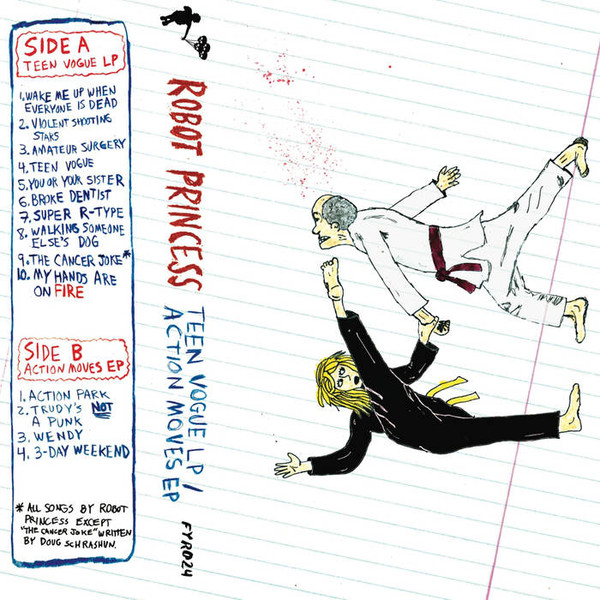 SIDE A
TEEN VOGUE LP
1. WAKE ME UP WHEN
EVERYONE IS DEAD
2. VIOLENT SHOOTING
STARS
3. AMATEUR SURGERY
4. TEEN VOGUE
5. YOU OR YOUR SISTER
6. BROKE DENTIST
7. SUPER R-TYPE
8. WALKING SOMEONE
ELSE'S DOG
9. THE CANCER JOKE*
10. MY HANDS ARE
ON FIRE
SIDE B
ACTION MOVES EP
1. ACTION PARK
2. TRUDY'S NOT
A PUNK
3. WENDY
4. 3-DAY WEEKEND
* ALL SONGS BY ROBOT
PRINCESS EXCEPT
"THE CANCER JOKE" WRITTEN
BY DOUG SCHRASHUN.
ROBOT PRINCESS
TEEN VOGUE LP/
ACTION MOVES EP
FYR024